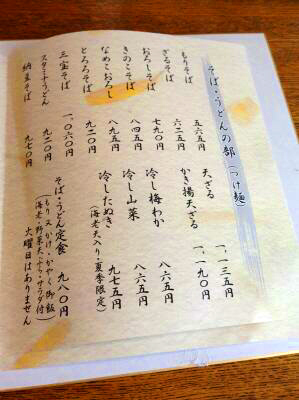 そば・うどんの部（つけ麺）
もりそば 五六五円
ざるそば 六二五円
おろしそば 七九〇円
きのこそば 八四五円
なめこおろし 八九五円
とろろそば 九二〇円
三宝そば 一、〇六〇円
スタミナうどん 九二〇円
納豆そば 九七〇円
天ざる 一、一三五円
かき揚天ざる 一、一九〇円
冷し梅わか 八六五円
冷し山菜 八六五円
冷したぬき 九七五円
（海老天入り・夏季限定）
そば・うどん定食 九八〇円
（もり又かけ・かやく御飯
海老・野菜天ぷら・サラダ付）
火曜日はありません